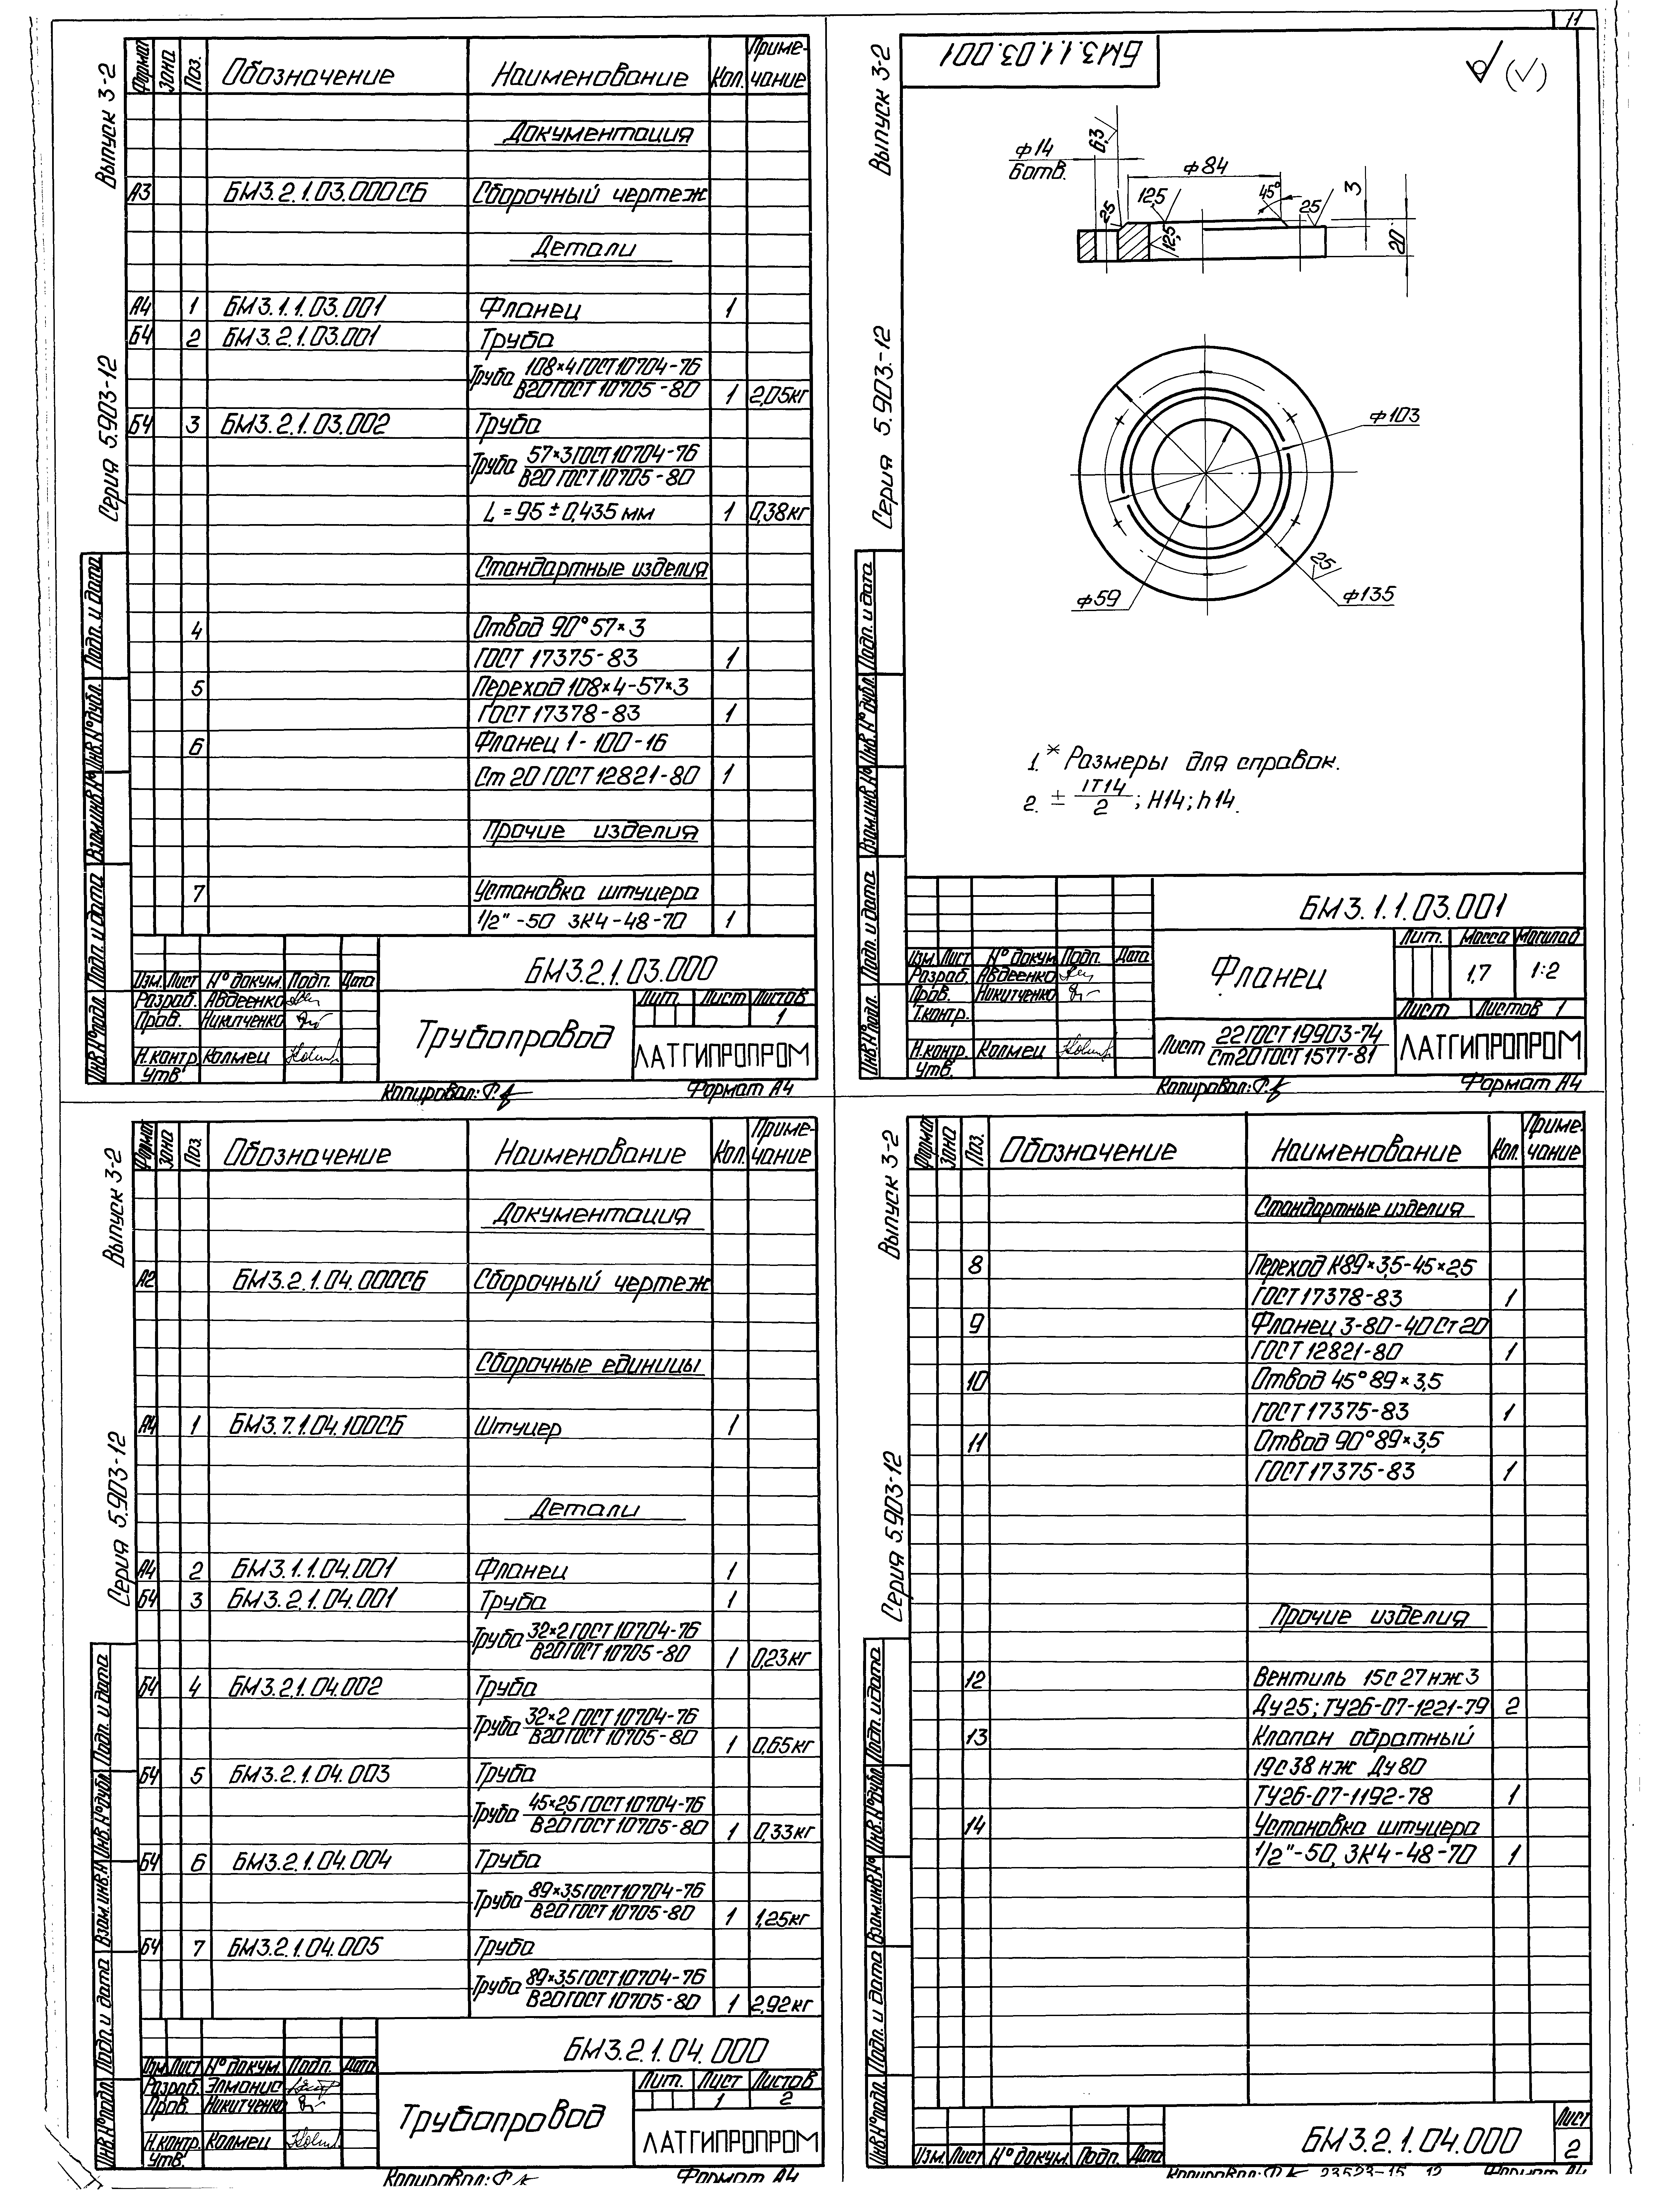 11
Выпуск 3-2
Серия 5.903-12
Формат Зона Поз. Обозначение Наименование Кол. Приме-чание
Документация
А3 БМ3.2.1.03.000СБ Сборочный чертеж
Детали
А4 1 БМ3.1.1.03.001 Фланец 1
Б4 2 БМ3.2.1.03.001 Труба
Труба 108×4 ГОСТ 10704-76
В20 ГОСТ 10705-80 1 2,05кг
Б4 3 БМ3.2.1.03.002 Труба
Труба 57×3 ГОСТ 10704-76
В20 ГОСТ 10705-80
L = 95 ± 0,435 мм 1 0,38кг
Стандартные изделия
4 Отвод 90° 57×3
ГОСТ 17375-83 1
5 Переход 108×4-57×3
ГОСТ 17378-83 1
6 Фланец 1-100-16
Ст 20 ГОСТ 12821-80 1
Прочие изделия
7 Установка штуцера
1/2"-50 ЗК4-48-70 1
Инв.№ подл. Подп. и дата Взам.инв.№ Инв.№ дубл. Подп. и дата
БМ3.2.1.03.000
Изм. Лист № докум. Подп. Дата
Разраб. Авдеенко
Пров. Никитченко
Н.контр. Колмец
Утв.
Трубопровод
Лит. Лист Листов
1
ЛАТГИПРОПРОМ
Копировал: Формат А4
Выпуск 3-2
Серия 5.903-12
БМ3.1.1.03.001
(√)
ф14
6отв.
6,3
ф84
45°
3
20
25
12,5
12,5
25
ф103
25
ф59
ф135
1.* Размеры для справок.
2. ± IT14/2; H14; h14.
Инв.№ подл. Подп. и дата Взам.инв.№ Инв.№ дубл. Подп. и дата
БМ3.1.1.03.001
Изм. Лист № докум. Подп. Дата
Разраб. Авдеенко
Пров. Никитченко
Т.контр.
Н.контр. Колмец
Утв.
Фланец
Лит. Масса Масштаб
1,7 1:2
Лист Листов 1
Лист 22 ГОСТ 19903-74
Ст20 ГОСТ 1577-81
ЛАТГИПРОПРОМ
Копировал: Формат А4
Выпуск 3-2
Серия 5.903-12
Формат Зона Поз. Обозначение Наименование Кол. Приме-чание
Документация
А2 БМ3.2.1.04.000СБ Сборочный чертеж
Сборочные единицы
А4 1 БМ3.7.1.04.100СБ Штуцер 1
Детали
А4 2 БМ3.1.1.04.001 Фланец 1
Б4 3 БМ3.2.1.04.001 Труба 1
Труба 32×2 ГОСТ 10704-76
В20 ГОСТ 10705-80 1 0,23кг
Б4 4 БМ3.2.1.04.002 Труба
Труба 32×2 ГОСТ 10704-76
В20 ГОСТ 10705-80 1 0,65кг
Б4 5 БМ3.2.1.04.003 Труба
Труба 45×2,5 ГОСТ 10704-76
В20 ГОСТ 10705-80 1 0,33кг
Б4 6 БМ3.2.1.04.004 Труба
Труба 89×3,5 ГОСТ 10704-76
В20 ГОСТ 10705-80 1 1,25кг
Б4 7 БМ3.2.1.04.005 Труба
Труба 89×3,5 ГОСТ 10704-76
В20 ГОСТ 10705-80 1 2,92кг
Инв.№ подл. Подп. и дата Взам.инв.№ Инв.№ дубл. Подп. и дата
БМ3.2.1.04.000
Изм. Лист № докум. Подп. Дата
Разраб. Элманис
Пров. Никитченко
Н.контр. Колмец
Утв.
Трубопровод
Лит. Лист Листов
1 2
ЛАТГИПРОПРОМ
Копировал: Формат А4
Выпуск 3-2
Серия 5.903-12
Формат Зона Поз. Обозначение Наименование Кол. Приме-чание
Стандартные изделия
8 Переход К89×3,5-45×2,5
ГОСТ 17378-83 1
9 Фланец 3-80-40 Ст 20
ГОСТ 12821-80 1
10 Отвод 45° 89×3,5
ГОСТ 17375-83 1
11 Отвод 90° 89×3,5
ГОСТ 17375-83 1
Прочие изделия
12 Вентиль 15с27нж3
Ду25; ТУ26-07-1221-79 2
13 Клапан обратный
19с38нж Ду80
ТУ26-07-1192-78 1
14 Установка штуцера
1/2"-50, ЗК4-48-70 1
Инв.№ подл. Подп. и дата Взам.инв.№ Инв.№ дубл. Подп. и дата
Изм. Лист № докум. Подп. Дата
БМ3.2.1.04.000
Лист
2
Копировал: 23523-15 12 Формат А4